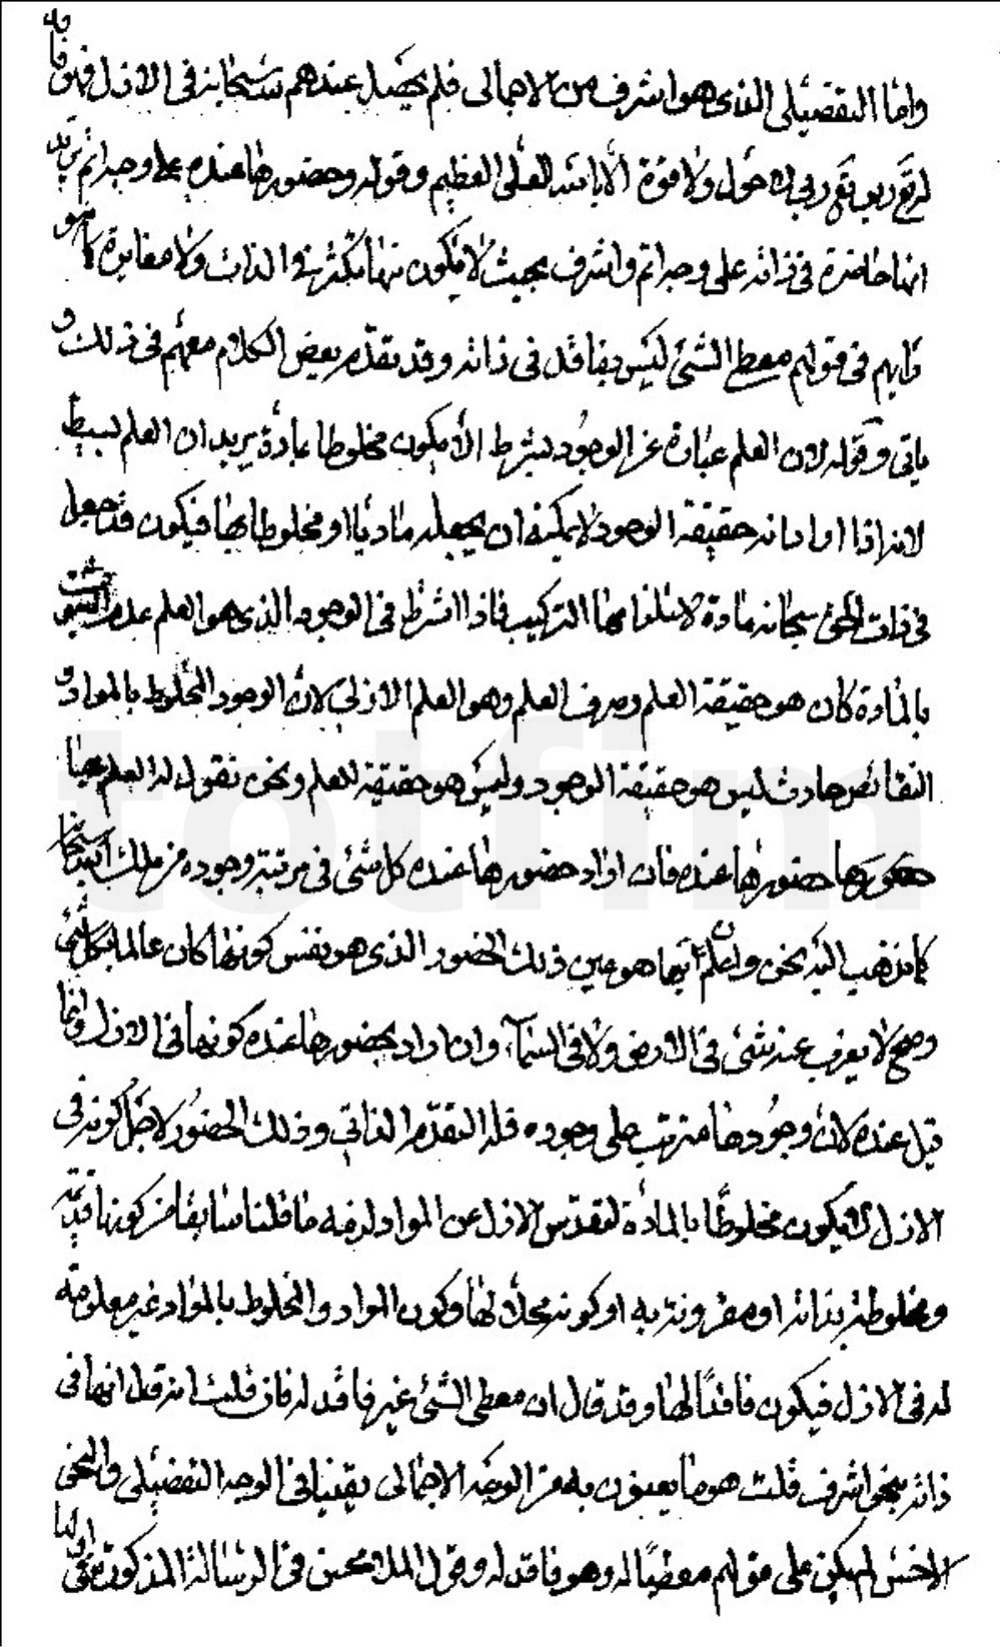 واما التفصيلي الذي هو اشرف من الاجمالي فلم يحصل عندهم سبحانه في الازل فهو فاقد
له تع ربي تع ربي لا حول ولا قوة الا بالله العلي العظيم وقوله وحضورها عنده على وجه اتم يريد به
انها حاضرة في ذاته على وجه اتم واشرف بحيث لا يكون منها تكثر في الذات ولا مغايرة كما هو
رايهم في قولهم معطي الشئ ليس بفاقد في ذاته وقد تقدم بعض الكلام معهم في ذلك و
ياتي وقوله لان العلم عبارة عن الوجود بشرط الا يكون مخلوطا بمادة يريد ان العلم بسيط
لانه اذا اراد انه حقيقة الوجود لا يمكنه ان يجعله ماديا او مخلوطا بها فيكون قد جعل
في ذات الحق سبحانه مادة لاستلزامها التركيب فاذا اشترط في الوجود الذي هو العلم عدم
بالمادة كان هو حقيقة العلم وصرف العلم وهو العلم الازلي لان الوجود المخلوط بالمواد و
النقائص حادث ليس هو حقيقة الوجود وليس هو حقيقة للعلم ونحن نقول له العلم بها
حضورها عنده فان اراد حضورها عنده كل شئ في مرتبة وجوده من ملك الله سبحانه
كما نذهب اليه نحن وان علم الله بها هو عين ذلك الحضور الذي هو نفس كونها كان عالما بكل شئ
وصح لا يعزب عنه شئ في الارض ولا في السماء وان اراد بحضورها عنده كونها في الازل وانما
قيل عنده لان وجودها مترتب على وجوده فله التقدم الذاتي وذلك الحضور لاجل كونه في
الازل لا يكون مخلوطا بالمادة لتقدس الازل عن المواد لزمه ما قلنا سابقا من كونها قديمة
ومخلوطة بذاته او مقرونة به او كونه محلا لها وكون المواد والمخلوط بالمواد غير معلومة
له في الازل فيكون فاقدا لها وقد قال ان معطي الشئ غير فاقد له فان قلت انه قال انها في
ذاته بنحو اشرف قلت هو ما يعنون به من الوجه الاجمالي يقينا في الوجه التفصيلي والنحو
الاخس لم يكن على قولهم معطيا له وهو فاقد له وقول الملا محسن في الرسالة المذكورة